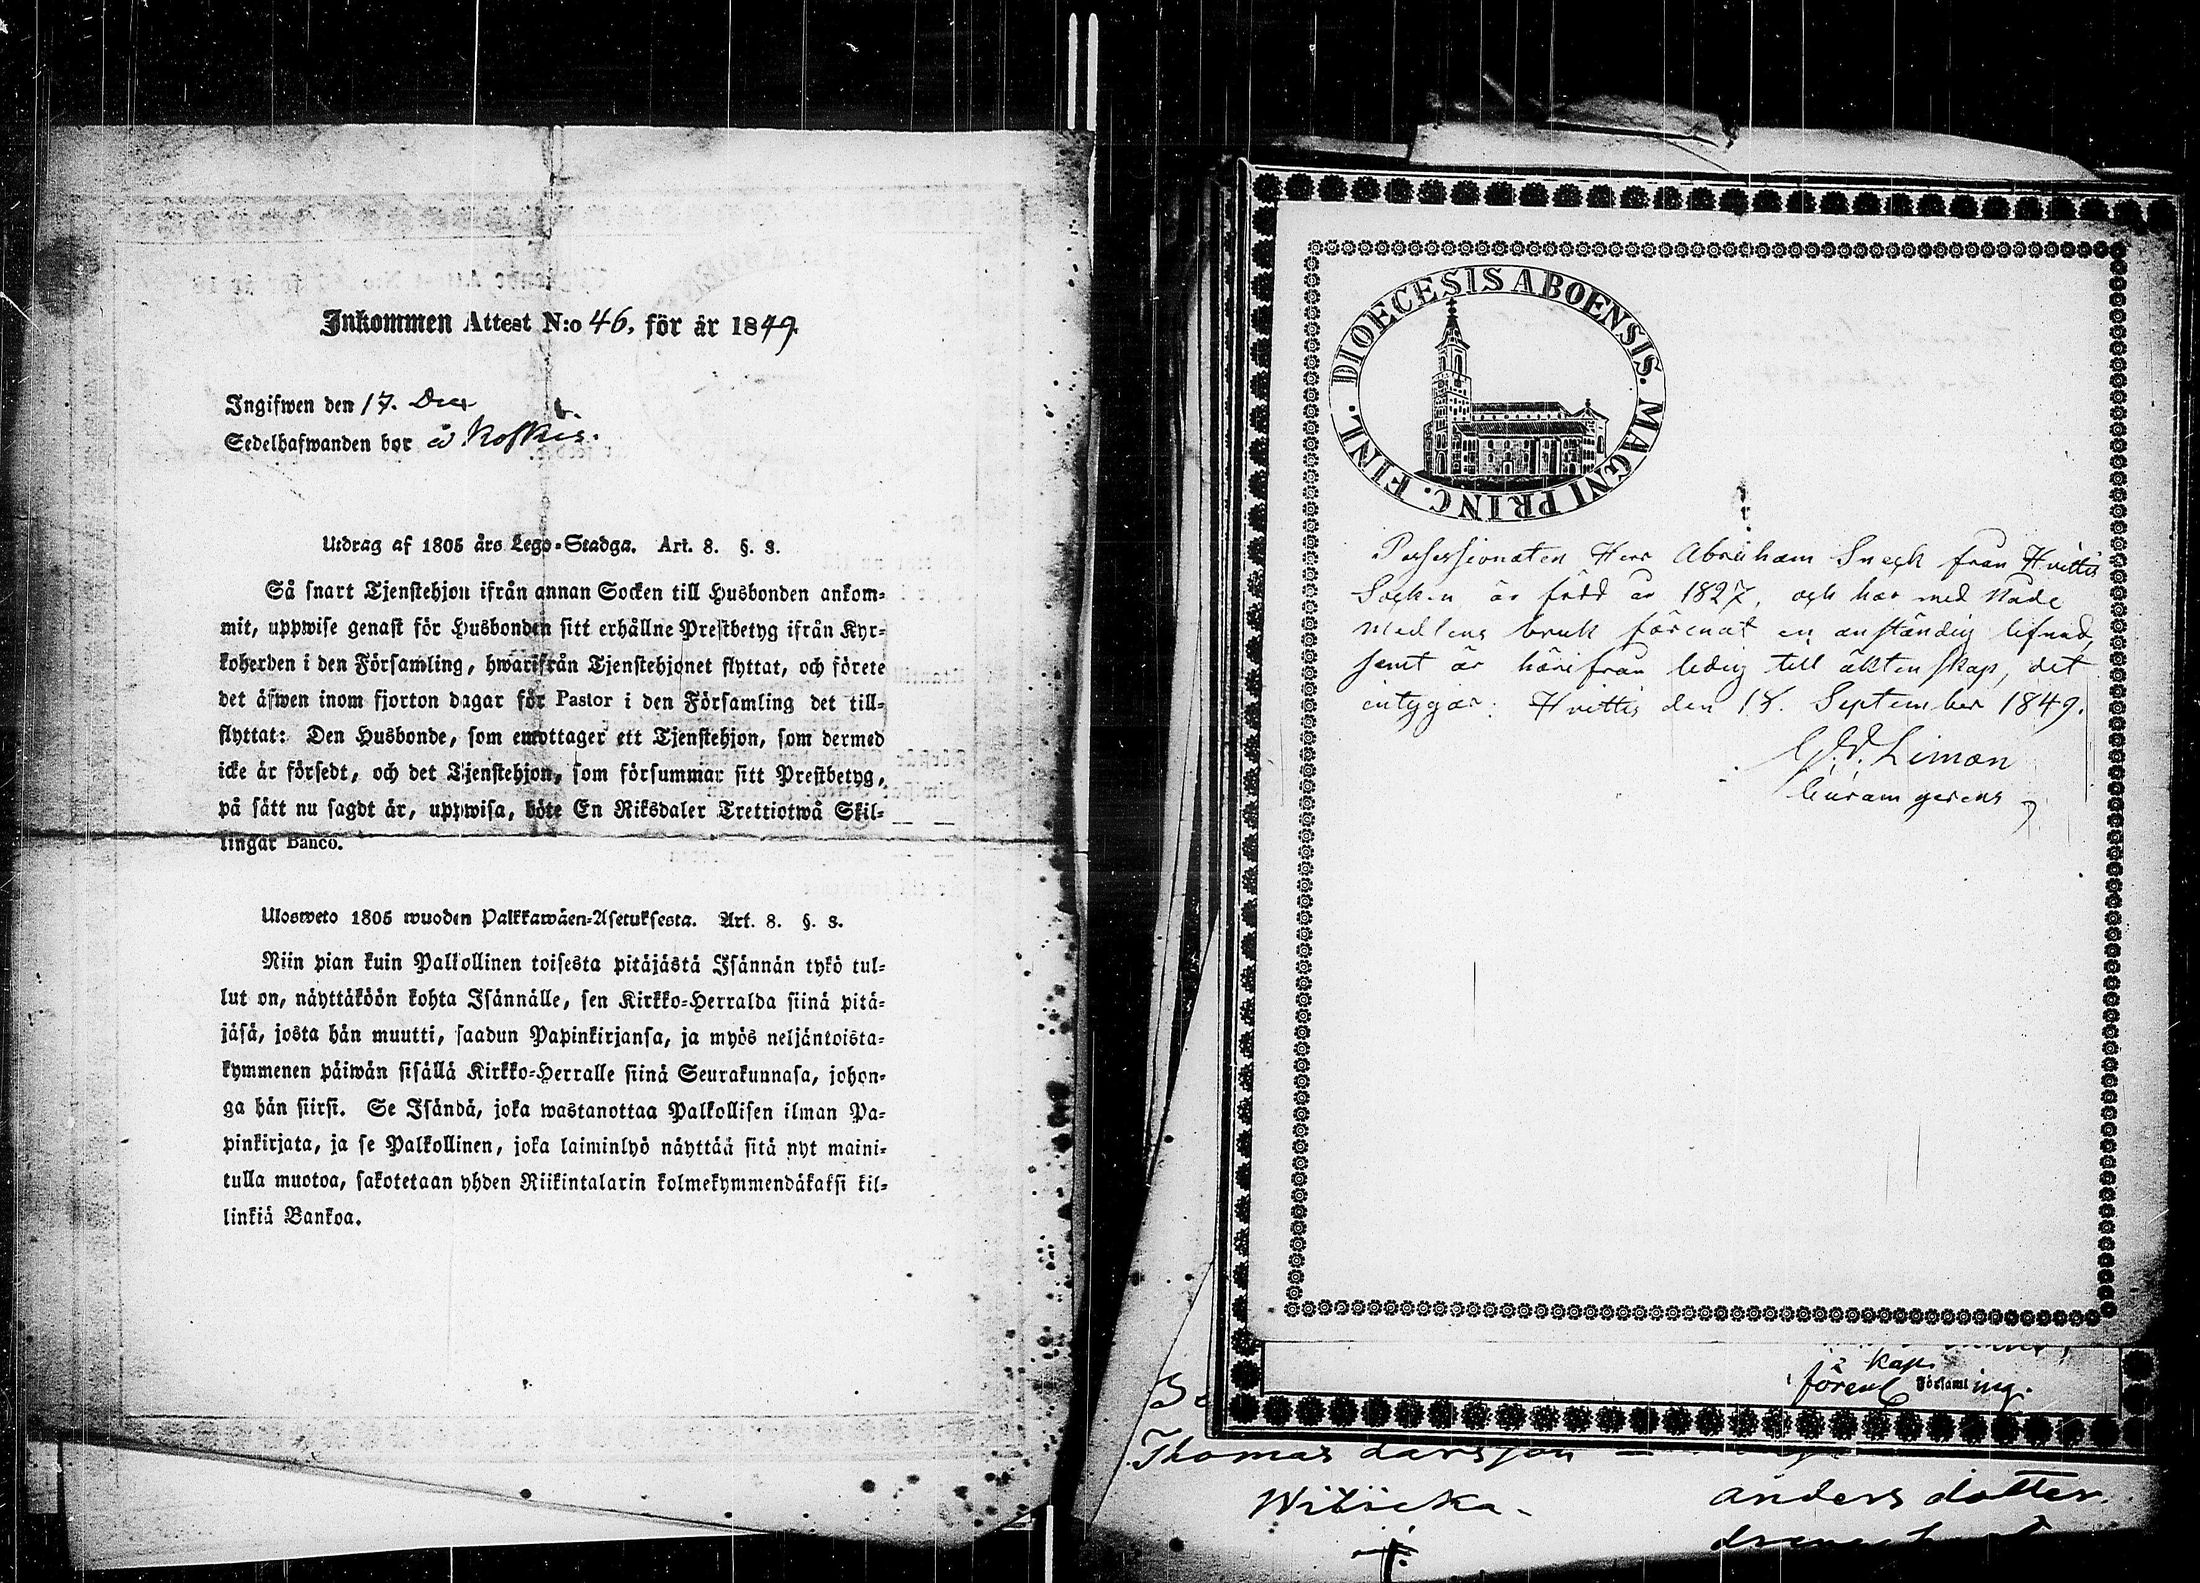 Inkommen Attest N:o 46. för år 1849.
Ingifwen den 17. Decr
Sedelhafwanden bor å Koskis.
Utdrag af 1805 års Lego-Stadga. Art. 8. §. 3.
Så snart Tjenstehjon ifrån annan Socken till Husbonden ankom-
mit, uppwise genast för Husbonden sitt erhållne Prestbetyg ifrån Kyr-
koherden i den Församling, hwarifrån Tjenstehjonet flyttat, och förete
det äfwen inom fjorton dagar för Pastor i den Församling det till-
flyttat: Den Husbonde, som emottager ett Tjenstehjon, som dermed
icke är försedt, och det Tjenstehjon, som försummar sitt Prestbetyg,
på sätt nu sagdt är, uppwisa, böte En Riksdaler Trettiotwå Skil-
lingar Banco.
Ulosweto 1805 wuoden Palkkawäen-Asetuksesta. Art. 8. §. 3.
Niin pian kuin Palkollinen toisesta pitäjästä Isännän tykö tul-
lut on, näyttäköön kohta Isännälle, sen Kirkko-Herralda siinä pitä-
jäsä, josta hän muutti, saadun Papinkirjansa, ja myös neljäntoista-
kymmenen päiwän sisällä Kirkko-Herralle siinä Seurakunnasa, johon-
ga hän siirsi. Se Isändä, joka wastanottaa Palkollisen ilman Pa-
pinkirjata, ja se Palkollinen, joka laiminlyö näyttää sitä nyt maini-
tulla muotoa, sakotetaan yhden Riikintalarin kolmekymmendäkaksi kil-
linkiä Bankoa.
DIOECESIS ABOENSIS. MAGNI PRINC. FINL.
Possessionaten Herr Abraham Sneck från Hvittis
Socken är född år 1827, och har med Nåde
medlens bruk förenat en anständig lefnad,
samt är härifrån ledig till äktenskap, det
intygar: Hvittis den 18. September 1849.
G. V. Liman
Curam gerens
kap.
Församling.
Thomas Larsson
Witicka
anders dotter